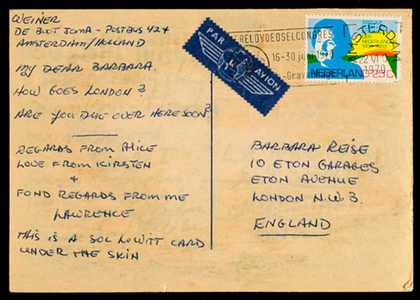 WEINER
DE BOOT JOMA - POSTBUS 424
AMSTERDAM/HOLLAND
MY DEAR BARBARA
HOW GOES LONDON?
ARE YOU DUE OVER HERE SOON?
REGARDS FROM ALICE
LOVE FROM KIRSTEN
+
FOND REGARDS FROM ME
LAWRENCE
THIS IS A SOL LEWITT CARD
UNDER THE SKIN
PAR AVION
WERELDVOEDSELCONGRES
16-30
AMSTERDAM
1970
NEDERLAND
BARBARA REISE
10 ETON GARAGES
ETON AVENUE
LONDON N.W.3.
ENGLAND